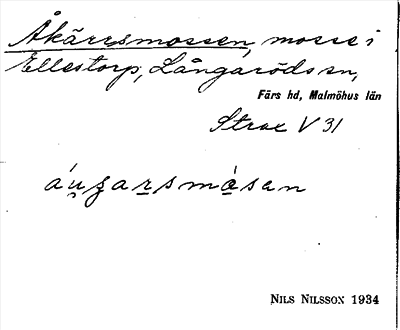 Åkärrsmossen, mosse i
Ellestorp, Långaröds sn,
Färs hd, Malmöhus län
Strax V 31
NILS NILSSON 1934